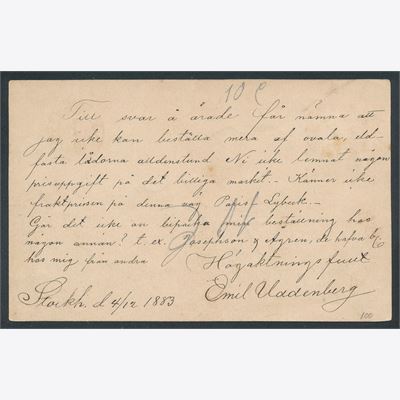 10 
Till svar å ärade får nämna att
jag icke kan beställa mera af ovala, eld-
fasta lådorna alldenstund Ni icke lemnat någon
prisuppgift på det billiga märket. Känner icke
fraktprisen på denna väg Paris-Lybeck.—
Går det icke an bipacka min beställning hos
någon annan? t. ex. Josephson & Ågren, de hafva
hos mig från andra
Högaktningsfullt
Stockh. d 4/12 1883
Emil Uddenberg
100